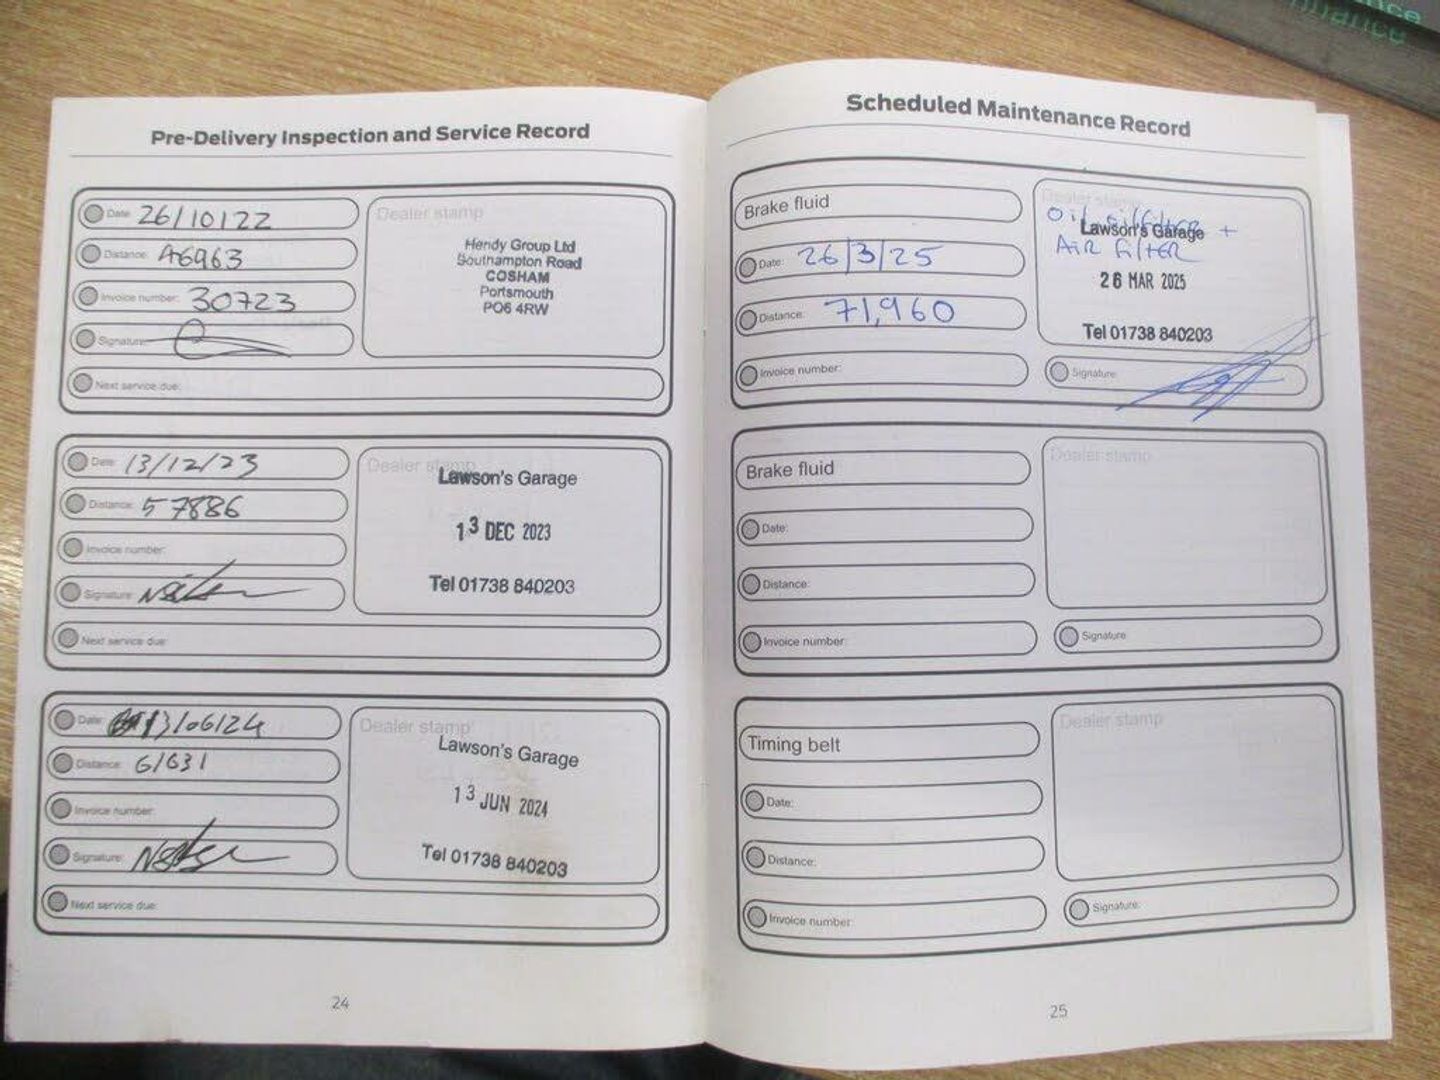 Pre-Delivery Inspection and Service Record
Date: 26/10/22
Distance: 46963
Invoice number: 30723
Signature:
Next service due:
Dealer stamp
Hendy Group Ltd
Southampton Road
COSHAM
Portsmouth
PO6 4RW
Date: 13/12/23
Distance: 57886
Invoice number:
Signature:
Next service due:
Dealer stamp
Lawson's Garage
13 DEC 2023
Tel 01738 840203
Date: 13/06/24
Distance: 61631
Invoice number:
Signature:
Next service due:
Dealer stamp
Lawson's Garage
13 JUN 2024
Tel 01738 840203
24
Scheduled Maintenance Record
Brake fluid
Date: 26/3/25
Distance: 71,960
Invoice number:
Dealer stamp
Oil, oilfilter +
Lawson's Garage
AIR FilTER
26 MAR 2025
Tel 01738 840203
Signature:
Brake fluid
Date:
Distance:
Invoice number:
Dealer stamp
Signature
Timing belt
Date:
Distance:
Invoice number:
Dealer stamp
Signature:
25